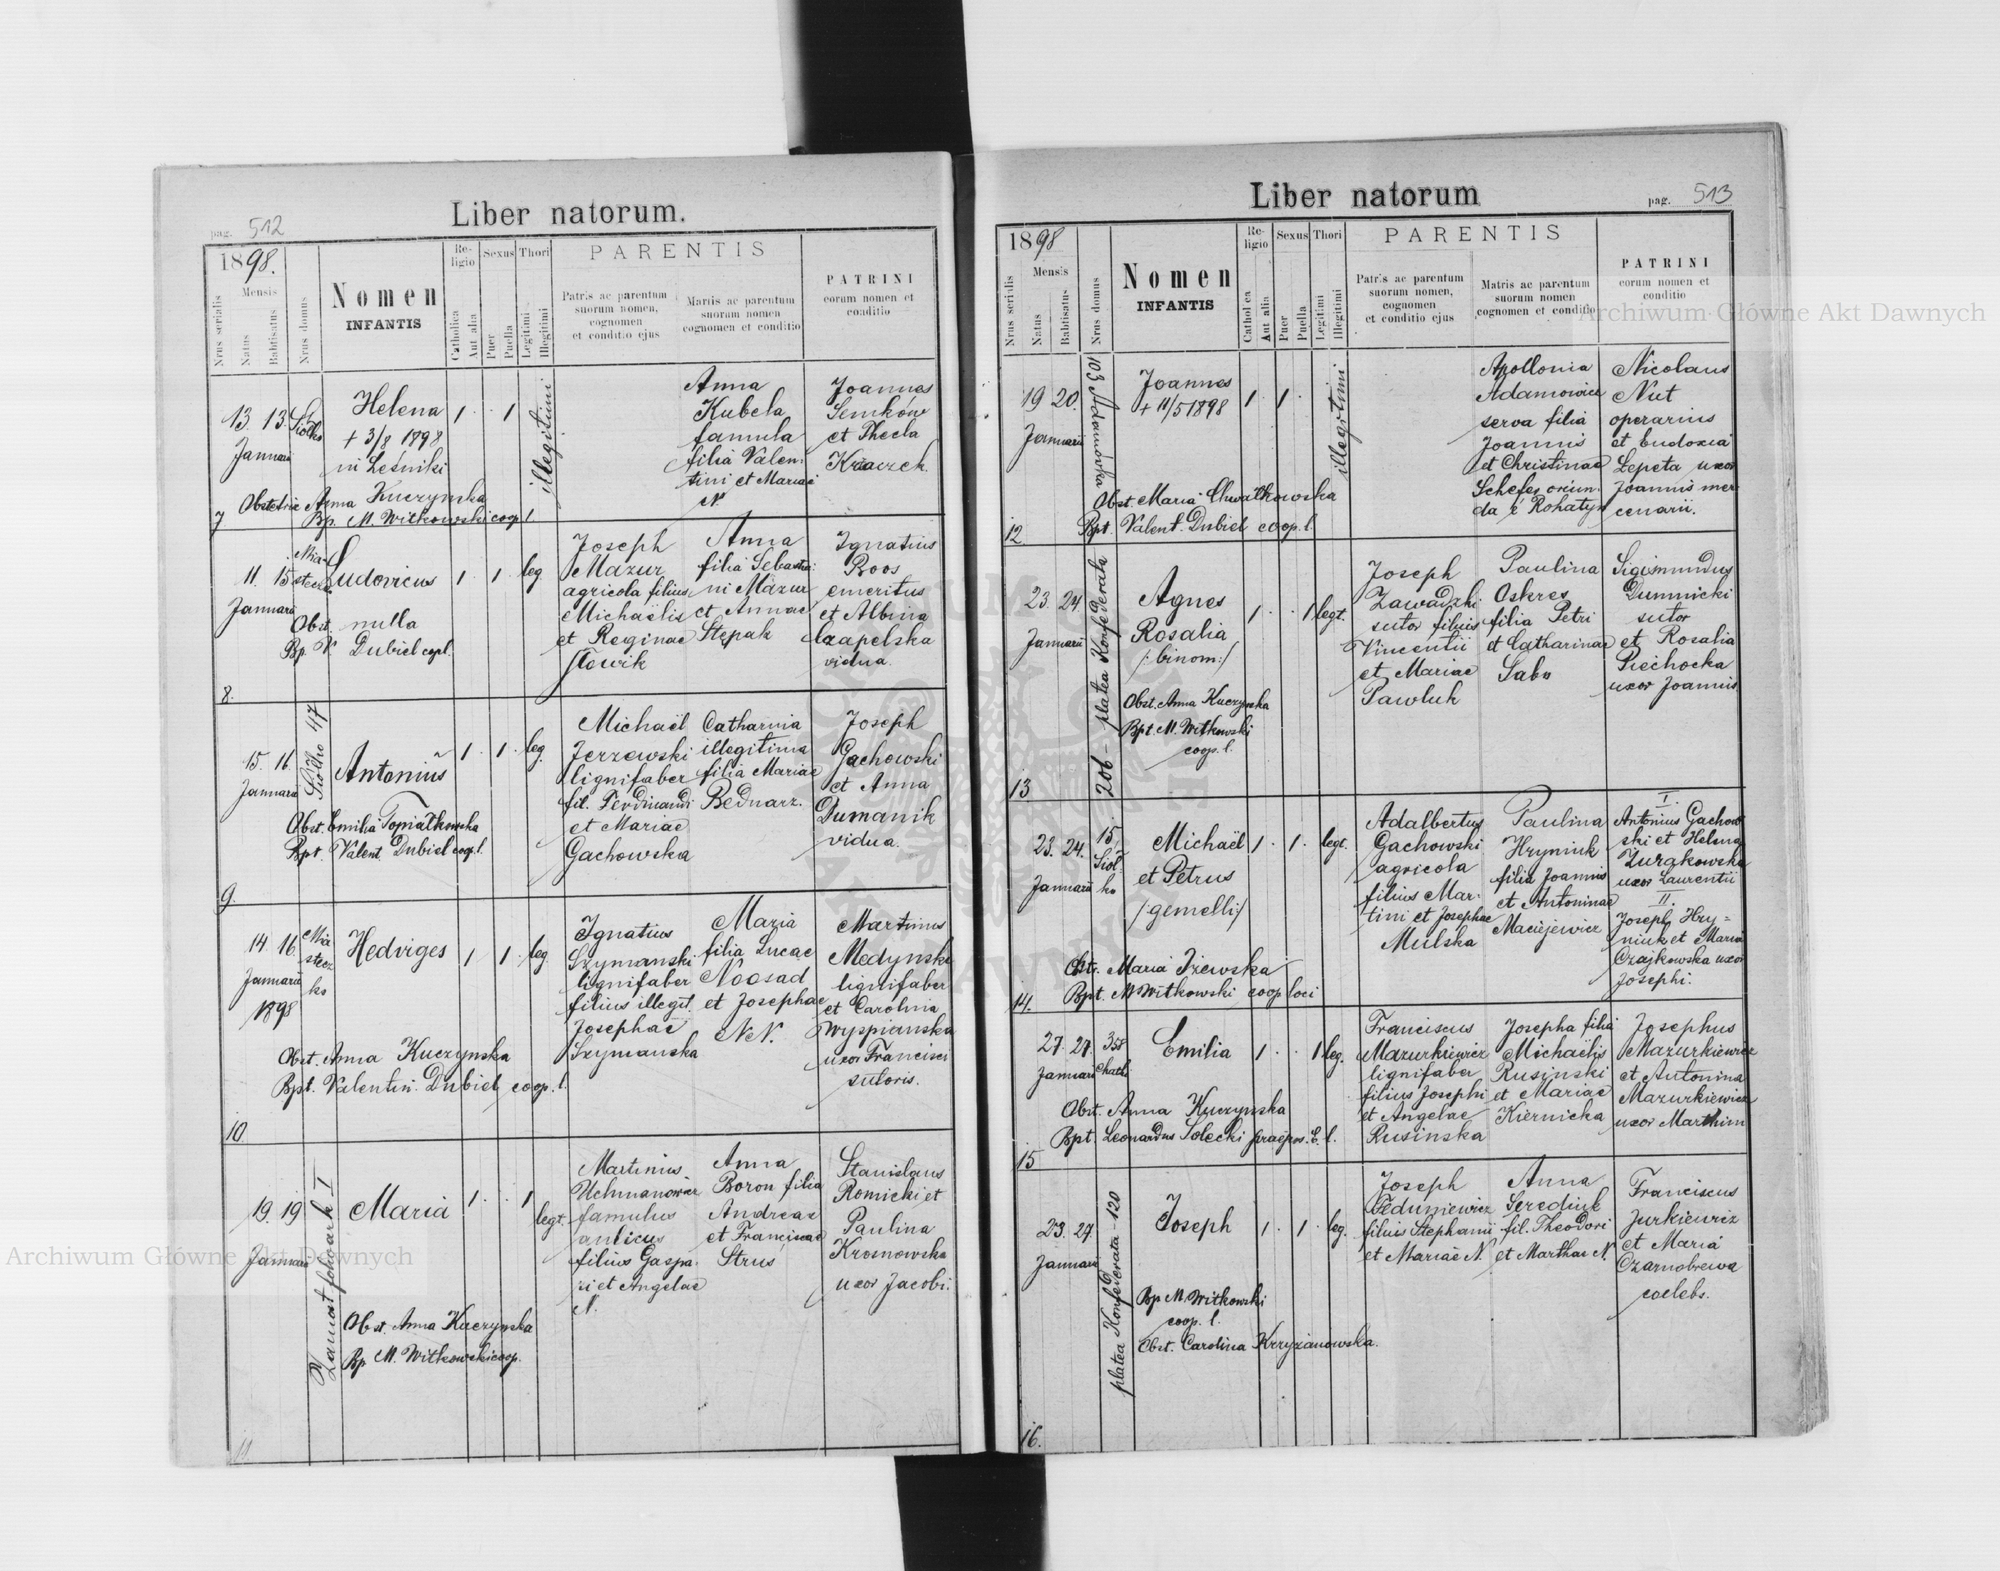 pag. 512
Liber natorum.
1898.
Nrus serialis
Mensis
Natus
Babtisatus
Nrus domus
Nomen
INFANTIS
Re-
ligio
Catholica
Aut alia
Sexus
Puer
Puella
Thori
Legitimi
Illegitimi
PARENTIS
Patris ac parentum
suorum nomen,
cognomen
et conditio ejus
Matris ac parentum
suorum nomen
cognomen et conditio
PATRINI
eorum nomen et
conditio
7
13. 13.
Januarii
Siółko
Helena
+ 3/8 1898
in Leśniki
1 1
illegitimi
Anna
Kubela
famula
filia Valen
tini et Mariae
N.
Joannes
Senków
et Thecla
Krawczek
Obstetrix Anna Kuczynska
Bp. M. Witkowski coop. l.
8.
11. 15
Januarii
Mia-
steczko
Ludovicus
1 1 leg.
Joseph
Mazur
agricola filius
Michaëlis
et Reginae
Słowik
Anna
filia Sebastia
ni Mazur
et Annae
Stępak
Ignatius
Roos
emeritus
et Albina
Czapelska
vidua.
Obst. nulla
Bp. V. Dubiel cop l.
9.
15. 16.
Januarii
Siółko 47
Antonius
1 1 leg.
Michaël
Jerzewski
lignifaber
fil. Ferdinandi
et Mariae
Gachowska
Catharina
illegitima
filia Mariae
Bednarz.
Joseph
Gachowski
et Anna
Dumanik
vidua.
Obst. Emilia Topiałkowska
Bpt. Valent. Dubiel coop. l.
10
14. 16.
Januarii
1898
Mia
stecz
ko
Hedviges
1 1 leg.
Ignatius
Szymanski
lignifaber
filius illegit.
Josephae
Szymanska
Maria
filia Lucae
Noosad
et Josephae
N.N.
Martinus
Medynski
lignifaber
et Carolina
Wyspianska
uxor Francisci
sutoris.
Obst. Anna Kuczynska
Bpt. Valentin. Dubiel coop. l.
11.
19. 19
Januarii
Zamost folwark I
Maria
1 1 legt.
Martinus
Uchmanowicz
famulus
aulicus
filius Gaspa
ri et Angelae
N.
Anna
Boron filia
Andreae
et Franciscae
Strus
Stanislaus
Romicki et
Paulina
Krosnowska
uxor Jacobi.
Obst. Anna Kuczynska
Bp M. Witkowski coop.
Liber natorum
pag. 513
1898
Nrus serialis
Mensis
Natus
Babtisatus
Nrus domus
Nomen
INFANTIS
Re-
ligio
Catholica
Aut alia
Sexus
Puer
Puella
Thori
Legitimi
Illegitimi
PARENTIS
Patris ac parentum
suorum nomen,
cognomen
et conditio ejus
Matris ac parentum
suorum nomen
cognomen et conditio
PATRINI
eorum nomen et
conditio
12
19 20.
Januarii
103 Adamówka
Joannes
+ 11/5 1898
1 1
illegitimi
Apollonia
Adamowicz
serva filia
Joannis
et Christinae
Schefer oriun
da e Rohatyn
Nicolaus
Nut
operarius
et Eudoxia
Lepeta uxor
Joannis mer
cenarii.
Obst. Maria Chwałkowska
Bpt. Valent. Dubiel coop. l.
13
23. 24
Januarii
206 - platea Konfederata
Agnes
Rosalia
/:binom:/
1 1 legt.
Joseph
Zawadzki
sutor filius
Vincentii
et Mariae
Pawluk
Paulina
Oskres
filia Petri
et Catharinae
Sabn
Sigismundus
Dumnicki
sutor
et Rosalia
Piechocka
uxor Joannis
Obst. Anna Kuczynska
Bpt. M. Witkowski
coop. l.
14.
23. 24.
Januarii
15
Siół-
ko
Michaël
et Petrus
/gemelli/
1 1 legt.
Adalbertus
Gachowski
agricola
filius Mar-
tini et Josephae
Mulska
Paulina
Hryniuk
filia Joannis
et Antoninae
Maciejewicz
I.
Antonius Gachow
ski et Helena
Żurakowska
uxor Laurentii
II.
Joseph Hry=
niuk et Maria
Czajkowska uxor
Josephi.
Obst. Maria Iżewska
Bpt. M Witkowski coop loci
15
27. 27.
Januarii
358
Emilia
1 1 leg.
Franciscus
Mazurkiewicz
lignifaber
filius Josephi
et Angelae
Rusinska
Josepha filia
Michaëlis
Rusinski
et Mariae
Kiernicka
Josephus
Mazurkiewicz
et Antonina
Mazurkiewicz
uxor Marthini
Obst. Anna Kuczynska
Bpt. Leonardus Solecki praepos. E. l.
16.
23. 27.
Januarii
platea Konfederata - 120
Joseph
1 1 leg.
Joseph
Feduniewicz
filius Stephanii
et Mariae N.
Anna
Serediuk
fil. Theodori
et Marthae N.
Franciscus
Jurkiewicz
et Maria
Czarnobrewa
coelebs.
Bp M. Witkowski
coop. l.
Obst. Carolina Krzyżanowska.
Archiwum Główne Akt Dawnych
Archiwum Główne Akt Dawnych